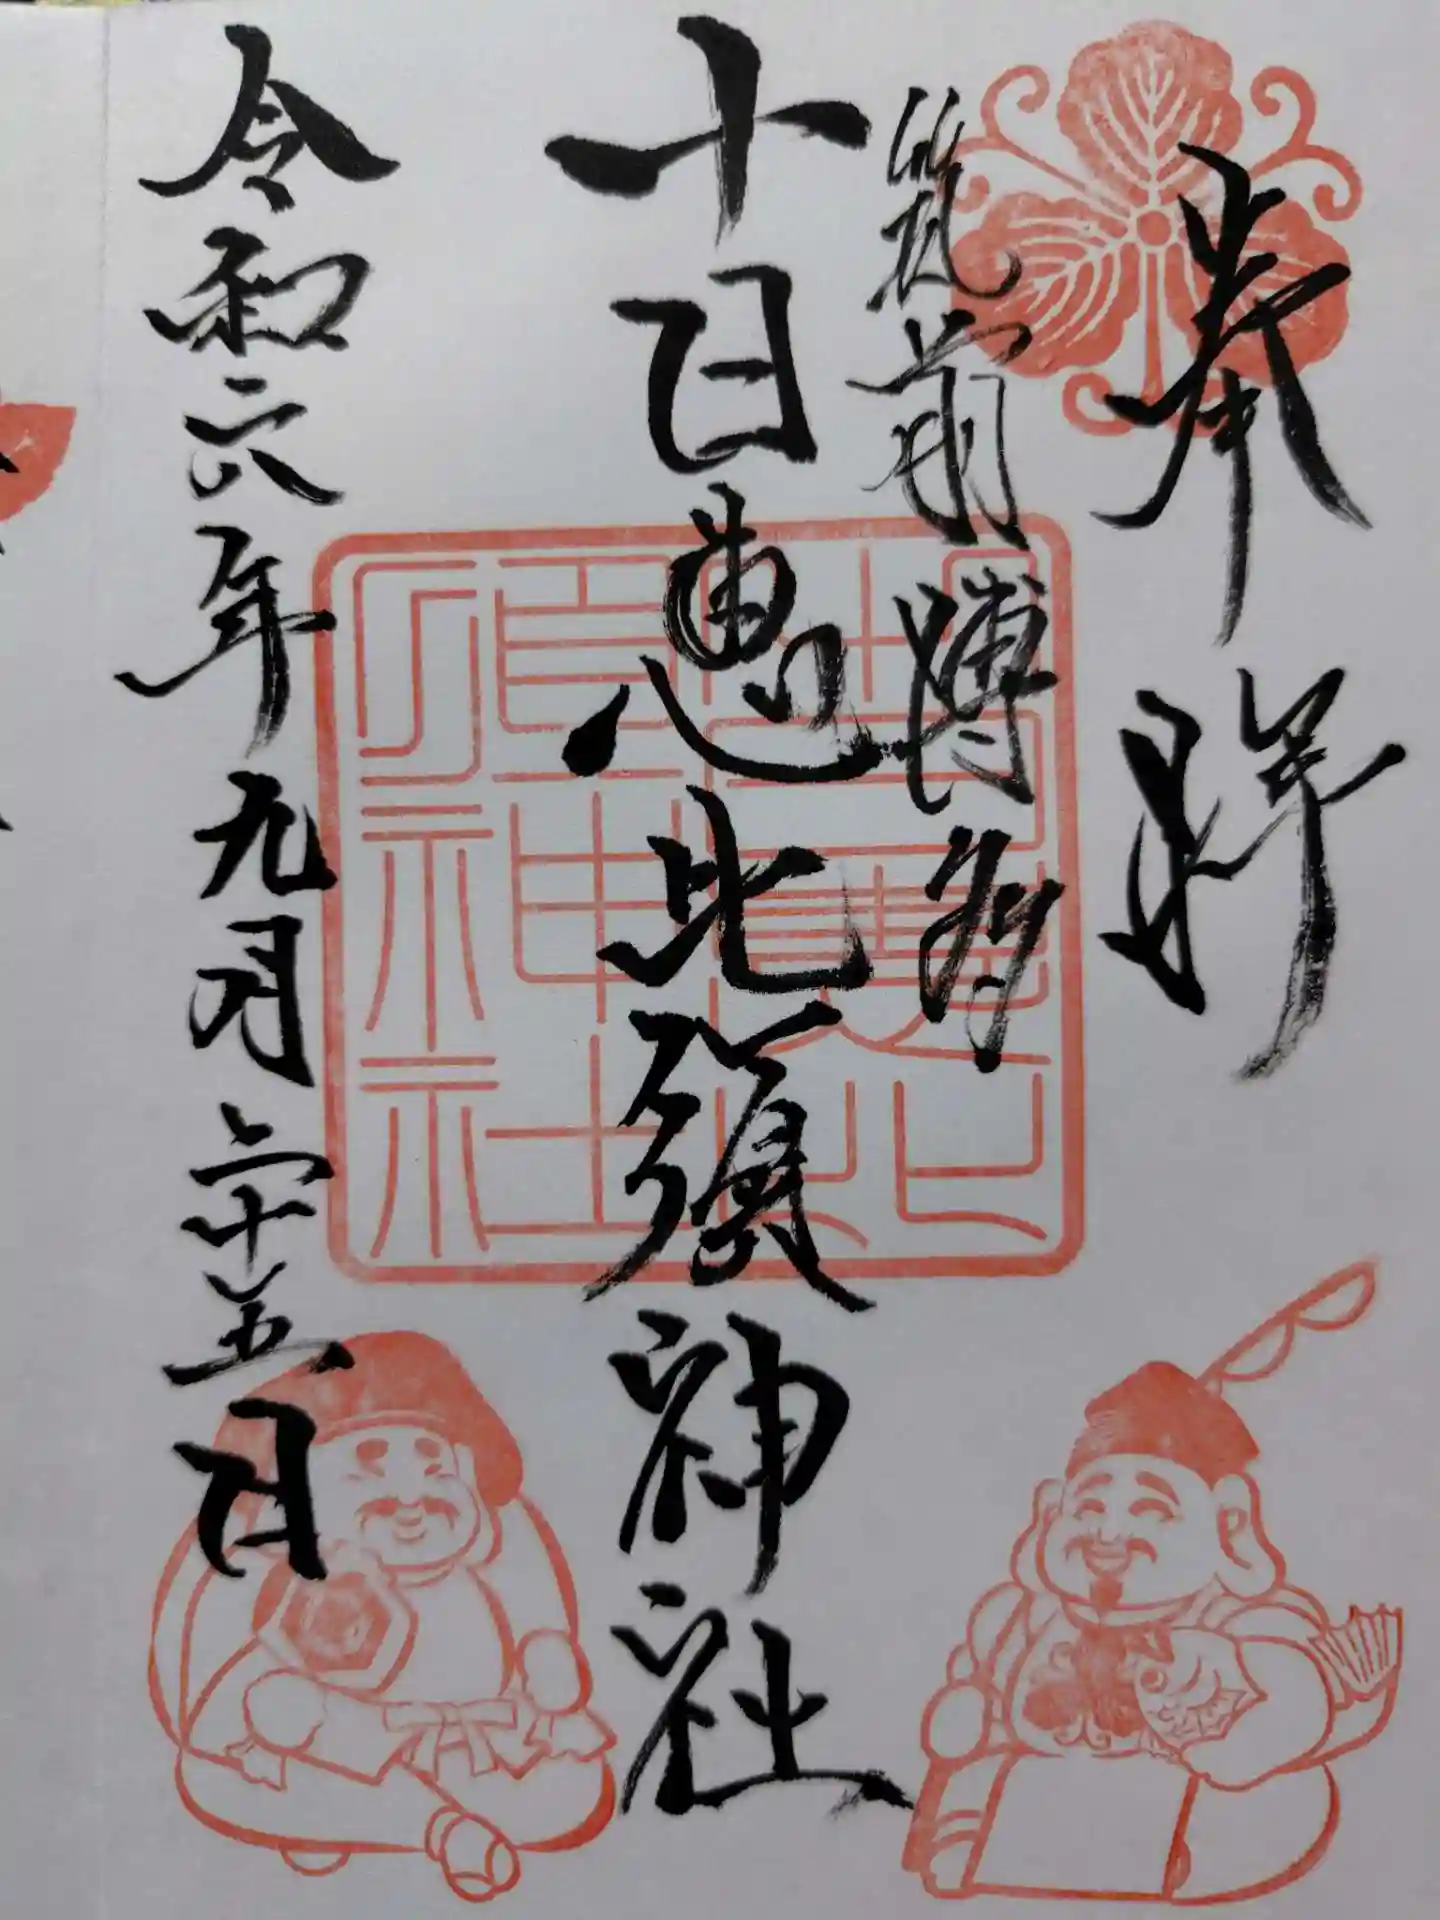 奉拝
筑前博多
十日恵比須神社
十日恵比須神社
令和六年九月二十五日